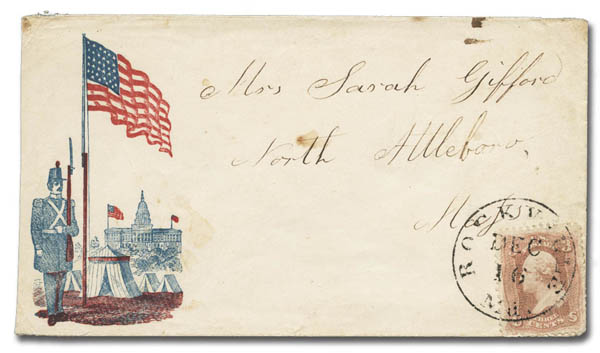 Mrs Sarah Gifford
North Attleboro,
Mass
ROCKVILLE
DEC
16
Md.
THREE
CENTS